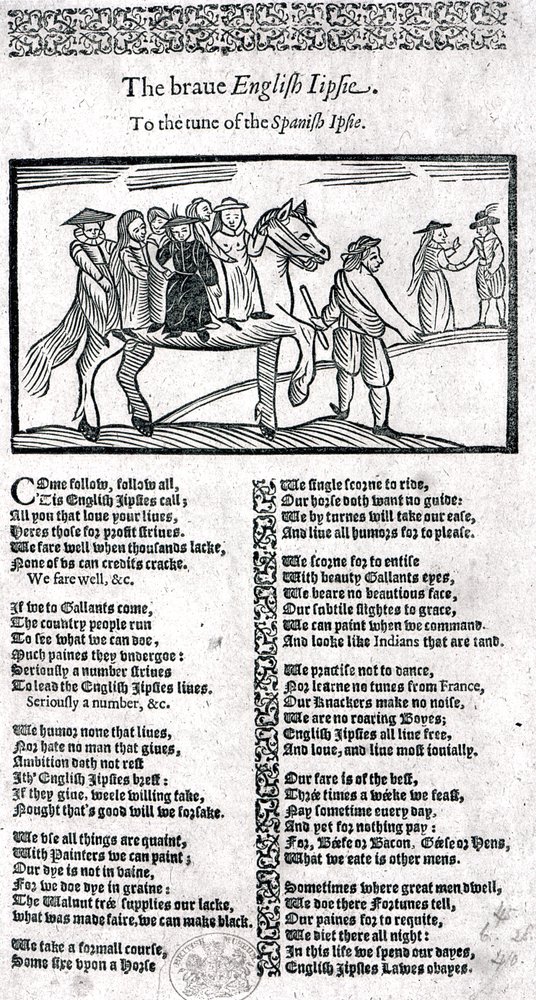 The braue English Iipsie.
To the tune of the Spanish Ipsie.
COme follow, follow all,
'Tis English Jipsies call;
All you that loue your liues,
Heres those for profit striues.
We fare well when thousands lacke,
None of vs can credits cracke.
We fare well, &c.
If we to Gallants come,
The country people run
To see what we can doe,
Much paines they vndergoe:
Seriously a number striues
To lead the English Jipsies liues.
Seriously a number, &c.
We humor none that liues,
Nor hate no man that giues,
Ambition doth not rest
Ith' English Jipsies brest:
If they giue, weele willing take,
Nought that's good will we forsake.
We vse all things are quaint,
With Painters we can paint;
Our dye is not in vaine,
For we doe dye in graine:
The Walnut tree supplies our lacke,
what was made faire, we can make black.
We take a formall course,
Some sixe vpon a Horse
We single scorne to ride,
Our horse doth want no guide:
We by turnes will take our ease,
And liue all humors for to please.
We scorne for to entise
With beauty Gallants eyes,
We beare no beautious face,
Our subtile slightes to grace,
We can paint when we command.
And looke like Indians that are tand.
We practise not to dance,
Nor learne no tunes from France,
Our Knackers make no noise,
We are no roaring Boyes;
English Jipsies all liue free,
And loue, and liue most iouially.
Our fare is of the best,
Three times a weeke we feast,
Nay sometime euery day,
And yet for nothing pay:
For, Beefe or Bacon, Geese or Hens,
What we eate is other mens.
Sometimes where great men dwell,
We doe there Fortunes tell,
Our paines for to requite,
We diet there all night:
In this life we spend our dayes,
English Jipsies Lawes obayes.